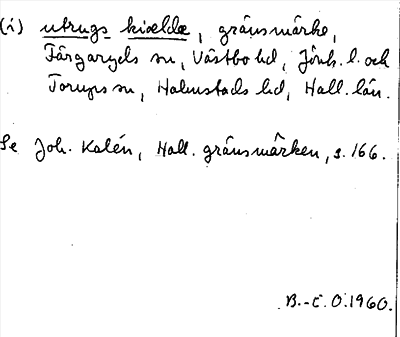 (i) utrugs kiældæ, gränsmärke,
Färgaryds sn, Västbo hd, Jönk. l. och
Torups sn, Halmstads hd, Hall. län.
Se Joh. Kalén, Hall. gränsmärken, s. 166.
B.-E. O. 1960.